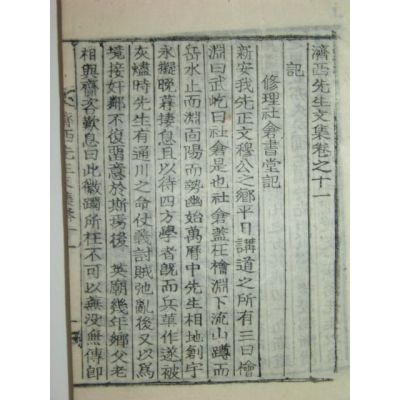 濟西先生文集卷之十一
記
修理社倉書堂記
新安我先正文穆公之鄉平日講道之所有三曰檜
淵曰武屹曰社倉是也社倉蓋在檜淵下流山蹲而
岳水止而淵面陽而勢幽始萬曆中先生相地創宇
永擬晚暮棲息且以待四方學者旣而兵革作遂被
灰燼時先生有通川之命仗義討賊弛亂後又以爲
境接奸鄰不復留意於斯焉後 英廟幾年鄉父老
相與齎咨歎息曰此徽躅所在不可以無沒無傳卽